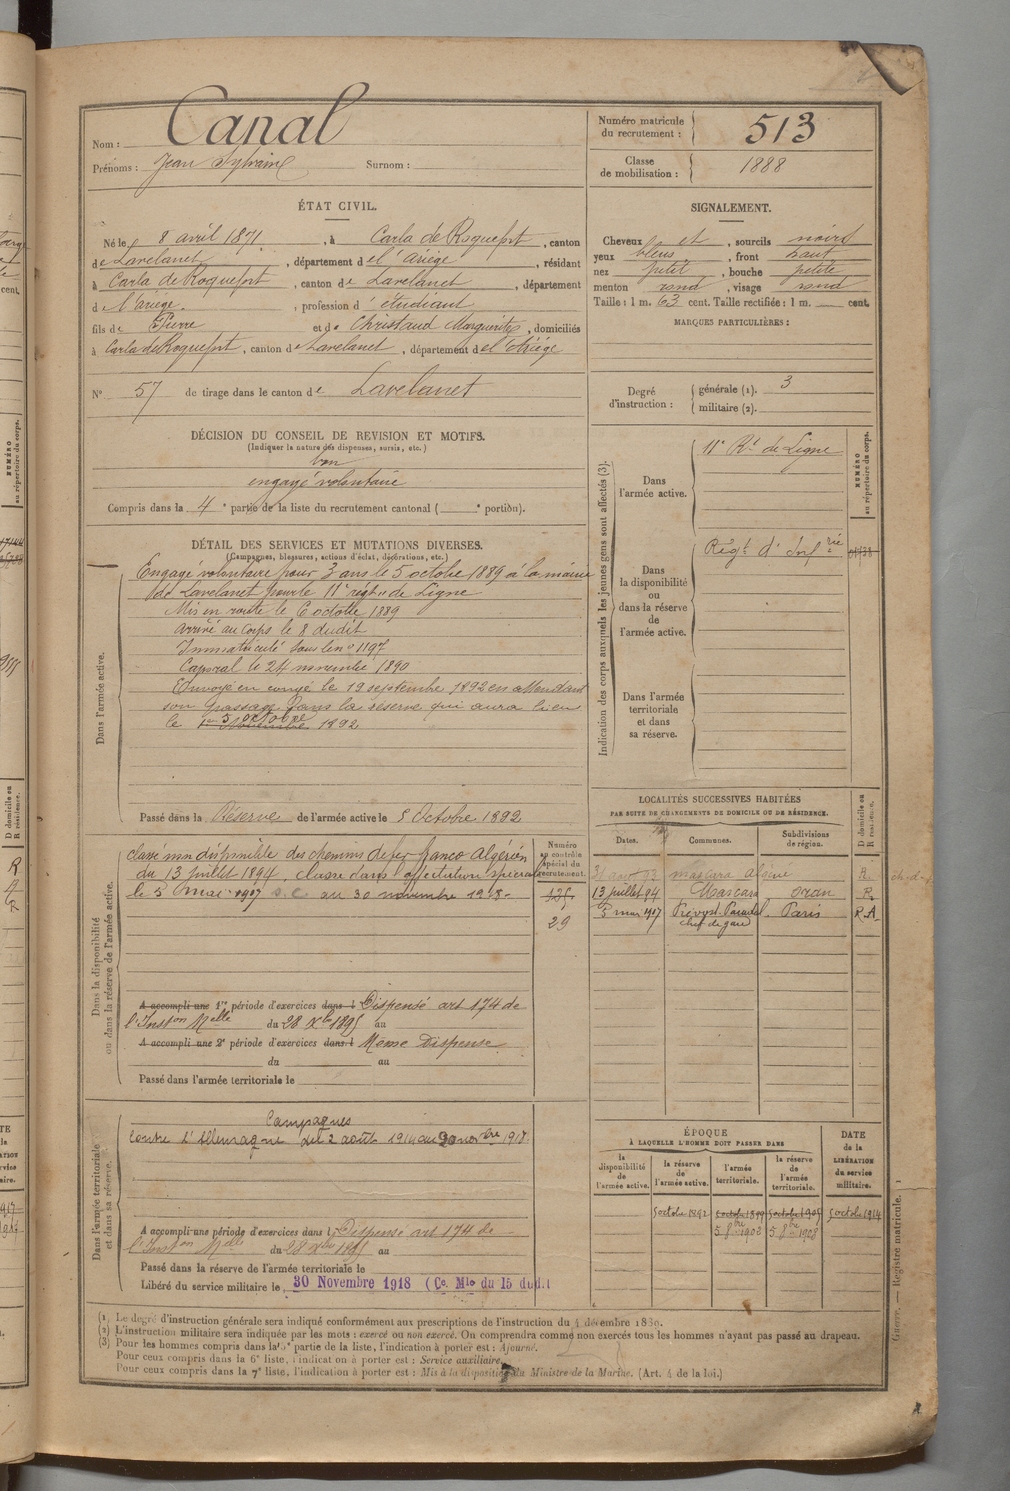 Nom : Canal
Prénoms : Jean Sylvain Surnom :
Numéro matricule du recrutement : 513
Classe de mobilisation : 1888
ÉTAT CIVIL.
Né le 8 avril 1871, à Carla de Roquefort, canton
de Lavelanet, département de l'Ariège, résidant
à Carla de Roquefort, canton de Lavelanet, département
d l'Ariège, profession d'étudiant
fils de Pierre et de Christaud Marguerite, domiciliés
à Carla de Roquefort, canton de Lavelanet, département de l'Ariège
N° 57 de tirage dans le canton de Lavelanet
SIGNALEMENT.
Cheveux et, sourcils noirs
yeux bleus, front haut
nez petit, bouche petite
menton rond, visage rond
Taille : 1 m. 63 cent. Taille rectifiée : 1 m. cent.
MARQUES PARTICULIÈRES :
Degré d'instruction : générale (1). 3
militaire (2).
DÉCISION DU CONSEIL DE REVISION ET MOTIFS.
(Indiquer la nature des dispenses, sursis, etc.)
bon
engagé volontaire
Compris dans la 4e partie de la liste du recrutement cantonal ( e portion).
DÉTAIL DES SERVICES ET MUTATIONS DIVERSES.
(Campagnes, blessures, actions d'éclat, décorations, etc.)
Dans l'armée active.
Engagé volontaire pour 3 ans le 5 octobre 1889 à la mairie
de Lavelanet pour le 11e régt de Ligne
Mis en route le 6 octobre 1889
arrivé au corps le 8 dudit
Immatriculé sous le n° 1197
Caporal le 24 novembre 1890
Envoyé en congé le 19 septembre 1892 en attendant
son passage dans la réserve qui aura lieu
le 1er Novembre 5 octobre 1892
Passé dans la Réserve de l'armée active le 5 Octobre 1892
Indication des corps auxquels les jeunes gens sont affectés (3).
NUMÉRO au répertoire du corps.
Dans l'armée active.
11e Rt de Ligne
Dans la disponibilité ou dans la réserve de l'armée active.
Régt d'Infrie
Dans l'armée territoriale et dans sa réserve.
Dans la disponibilité ou dans la réserve de l'armée active.
classé non disponible des chemins de fer franco Algérien
du 13 juillet 1894 classé dans affectation spéciale
le 5 mai 1907 s. c. au 30 novembre 1918.
Numéro au contrôle spécial du recrutement.
135
29
A accompli une 1re période d'exercices dans l Dispensé art 174 de
l'Inston Melle du 28 Xbre 1895 au
A accompli une 2e période d'exercices dans l Même Dispense
du au
Passé dans l'armée territoriale le
LOCALITÉS SUCCESSIVES HABITÉES
PAR SUITE DE CHANGEMENTS DE DOMICILE OU DE RÉSIDENCE.
Dates. Communes. Subdivisions de région. D domicile ou R résidence.
31 aout 93 mascara Algérie R.
13 juillet 94 Mascara Oran R.
5 mai 1907 Prévost-Paradol Paris R.A.
chef de gare
Dans l'armée territoriale et dans sa réserve.
Campagnes
Contre l'Allemagne du 2 août 1914 au 30 novbre 1918
A accompli une période d'exercices dans l Dispensé art 174 de
l'Inston Melle du 28 Xbre 1895 au
Passé dans la réserve de l'armée territoriale le
Libéré du service militaire le 30 Novembre 1918 (Ce. Mle du 15 dud.t
ÉPOQUE
À LAQUELLE L'HOMME DOIT PASSER DANS
la disponibilité de l'armée active. la réserve de l'armée active. l'armée territoriale. la réserve de l'armée territoriale. DATE de la LIBÉRATION du service militaire.
5 octobre 1892 5 octobre 1899 5 octobre 1905 5 octobre 1914
5 8bre 1902 5 8bre 1908
(1) Le degré d'instruction générale sera indiqué conformément aux prescriptions de l'instruction du 4 décembre 1889.
(2) L'instruction militaire sera indiquée par les mots : exercé ou non exercé. On comprendra comme non exercés tous les hommes n'ayant pas passé au drapeau.
(3) Pour les hommes compris dans la 5e partie de la liste, l'indication à porter est : Ajourné.
Pour ceux compris dans la 6e liste, l'indication à porter est : Service auxiliaire.
Pour ceux compris dans la 7e liste, l'indication à porter est : Mis à la disposition du Ministre de la Marine. (Art. 4 de la loi.)
Guerre. — Registre matricule. 1